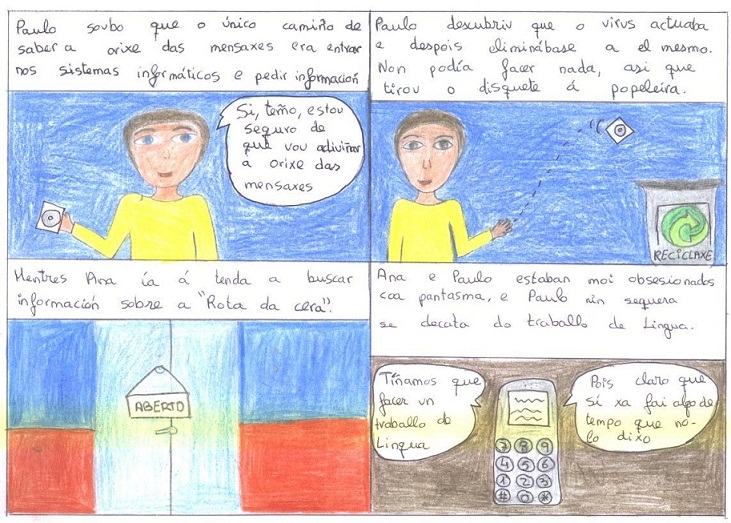 Paulo soubo que o único camiño de
saber a orixe das mensaxes era entrar
nos sistemas informáticos e pedir información
Si, teño, estou
seguro de
que vou adiviñar
a orixe das
mensaxes
Paulo descubriu que o virus actuaba
e despois eliminábase a el mesmo.
Non podía facer nada, asi que
tirou o disquete á papeleira.
RECICLAXE
Mentres Ana ía á tenda a buscar
información sobre a "Rota da cera".
ABERTO
Ana e Paulo estaban moi obsesionados
coa pantasma, e Paulo nin sequera
se decata do traballo de Lingua.
Tiñamos que
facer un
traballo de
Lingua
Pois claro que
sí xa fai algo de
tempo que no-
lo dixo
7 8 9
4 5 6
1 2 3
# 0 *